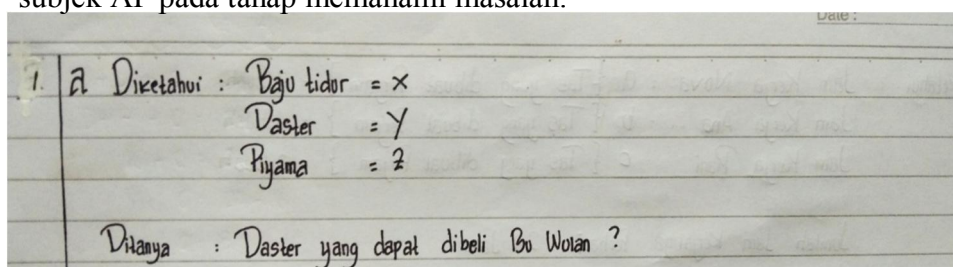 subjek AF pada tahap memahami masalah.
Date :
1. a Diketahui : Baju tidur = x
Daster = y
Piyama = z
Ditanya : Daster yang dapat dibeli Bu Wulan ?